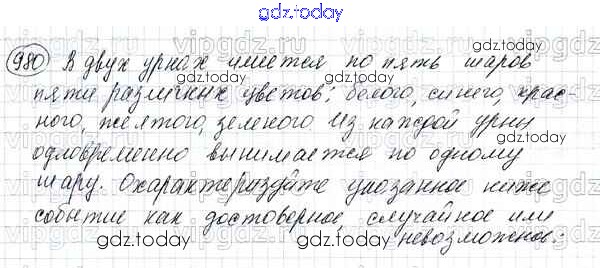 gdz.today
980 В двух урнах имеется по пять шаров
gdz.today gdz.today
пяти различных цветов: белого, синего, крас
ного, желтого, зеленого. Из каждой урны
gdz.today gdz.today
одновременно вынимается по одному
gdz.today
шару. Охарактеризуйте указанное ниже
событие как достоверное, случайное или
gdz.today gdz.today
невозможное:
gdz.today